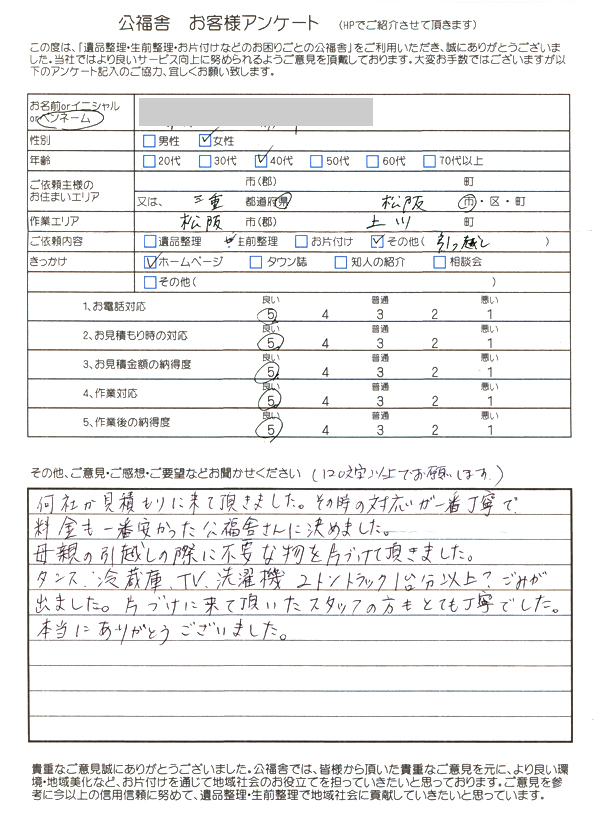 公福舎　お客様アンケート　(HPでご紹介させて頂きます)
この度は、「遺品整理・生前整理・お片付けなどのお困りごとの公福舎」をご利用いただき、誠にありがとうございま
した。当社ではより良いサービス向上に努められるようご意見を頂戴しております。大変お手数ではございますが以
下のアンケート記入のご協力、宜しくお願い致します。
お名前orイニシャル
orペンネーム
性別 男性 女性
年齢 20代 30代 40代 50代 60代 70代以上
ご依頼主様の 市(郡) 町
お住まいエリア 又は、 三重 都道府県 松阪 市・区・町
作業エリア 松阪 市(郡) 上川 町
ご依頼内容 遺品整理 生前整理 お片付け その他( 引っ越し )
きっかけ ホームページ タウン誌 知人の紹介 相談会
その他( )
良い 普通 悪い
1、お電話対応 5 4 3 2 1
良い 普通 悪い
2、お見積もり時の対応 5 4 3 2 1
良い 普通 悪い
3、お見積金額の納得度 5 4 3 2 1
良い 普通 悪い
4、作業対応 5 4 3 2 1
良い 普通 悪い
5、作業後の納得度 5 4 3 2 1
その他、ご意見・ご感想・ご要望などお聞かせください (120文字以上でお願いします。)
何社か見積もりに来て頂きました。その時の対応が一番丁寧で
料金も一番安かった公福舎さんに決めました。
母親の引越しの際に不要な物を片づけて頂きました。
タンス、冷蔵庫、TV、洗濯機 2トントラック1台分以上?ごみが
出ました。片づけに来て頂いたスタッフの方もとても丁寧でした。
本当にありがとうございました。
貴重なご意見誠にありがとうございました。公福舎では、皆様から頂いた貴重なご意見を元に、より良い環
境・地域美化など、お片付けを通じて地域社会のお役立てを担っていきたいと思っております。ご意見を参
考に今以上の信用信頼に努めて、遺品整理・生前整理で地域社会に貢献していきたいと思っています。